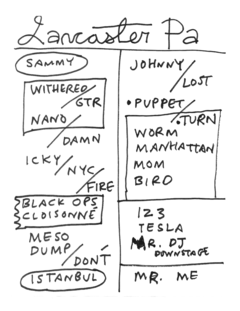 Lancaster Pa
SAMMY
WITHERED/
GTR
NANO/
DAMN
ICKY/
NYC/
FIRE
BLACK OPS
CLOISONNÉ
MESO
DUMP/
DON'T
ISTANBUL
JOHNNY/
LOST
•PUPPET/
•TURN
WORM
MANHATTAN
MOM
BIRD
123
TESLA
MR. DJ
DOWNSTAGE
MR. ME